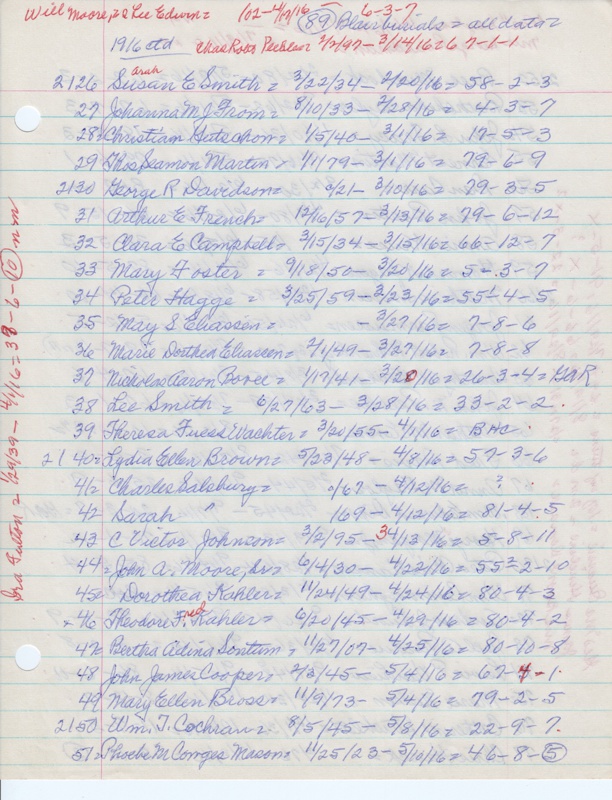 Will Moore, 22 Lee Edwin = 102 - 4/17/16 = 6-3-7
(89) Blair burials = all data =
1916 ctd Chas Ross Peebler = 3/2/97 - 3/14/16 = 6 7-1-1
2126 Susan E Smith = 3/22/34 - 2/20/16 = 58-2-3
arah
27 Johanna M J From = 8/10/33 - 2/28/16 = 4-3-7
28 = Christian Gotschon = 1/5/40 - 3/1/16 = 17-5-3
29 Thos Seamon Martin = 1/1/79 - 3/1/16 = 79-6-9
2130 George R Davidson = 0/21 - 3/10/16 = 79-3-5
31 Arthur E French = 12/16/57 - 3/13/16 = 79-6-12
32 Clara E Campbell = 3/15/34 - 3/15/16 = 66-12-7
33 Mary Foster = 9/18/50 - 3/20/16 = 5-3-7
34 Peter Hagge = 3/25/59 - 3/23/16 = 55½-4-5
35 May S Eliassen = - 3/27/16 = 7-8-6
36 Marie Dorthea Eliassen = 2/1/49 - 3/27/16 = 7-8-8
37 Nicholas Aaron Bovee = 1/17/41 - 3/20/16 = 26-3-4 = GAR
38 Lee Smith = 6/27/63 - 3/28/16 = 33-2-2.
39 Theresa Fuess Wachter = 3/20/55 - 4/1/16 = BHC.
2140 = Lydia Ellen Brown = 5/23/48 - 4/8/16 = 57-3-6
41 = Charles Salsbury = 0/67 - 4/12/16 = ?
42 Sarah " 169 - 4/12/16 = 81-4-5
43 C Victor Johnson = 3/2/95 - 3/13/16 = 5-8-11
44 = John A. Moore, Sr = 6/4/30 - 4/22/16 = 55²-2-10
45 = Dorothea Kahler = 11/24/49 - 4/24/16 = 80-4-3
x 46 Theodore Fred Kahler = 6/20/45 - 4/29/16 = 80-4-2
47 Bertha Adina Sontum = 11/27/07 - 4/25/16 = 80-10-8
48 John James Cooper = 2/3/45 - 5/4/16 = 67-4-1.
49 Mary Ellen Bross = 11/9/73 - 5/4/16 = 79-2-5
2150 Wm. T. Cochran = 8/5/45 - 5/8/16 = 22-9-7.
51 = Phoebe M Conges Mason = 11/25/23 - 5/10/16 = 46-8-(5)
Ira Futton = 1/29/39 - 4/1/16 = 38-6-(10) nm